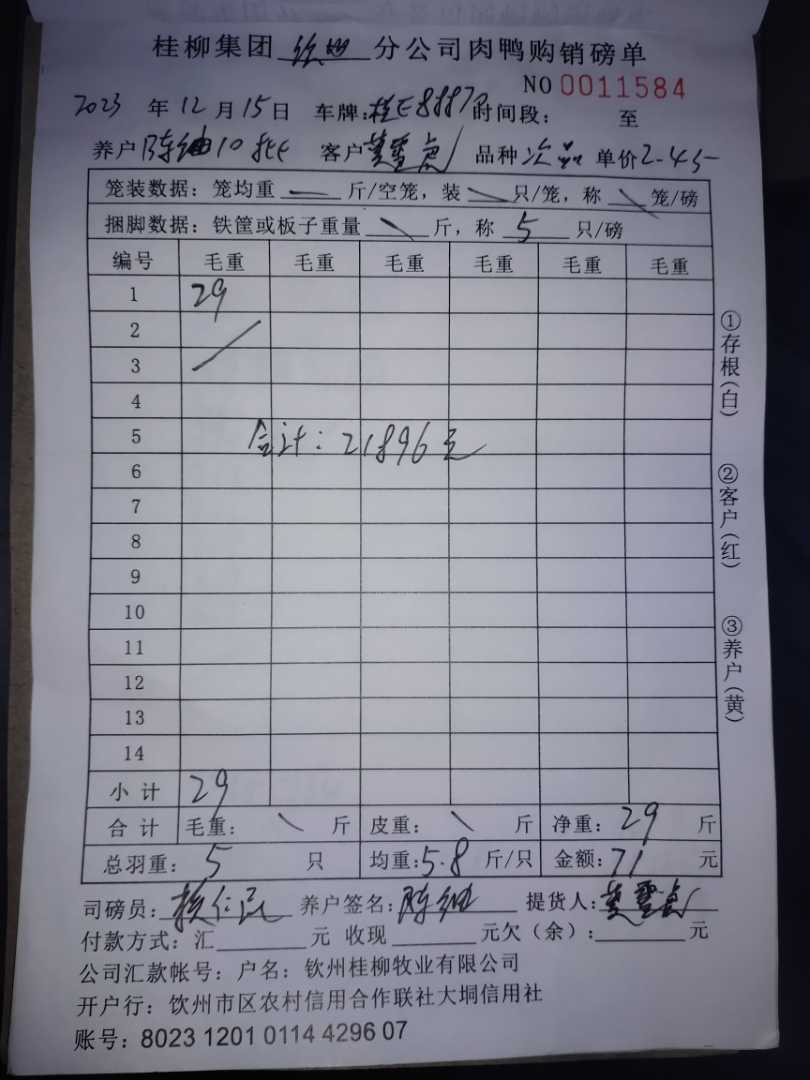 桂柳集团 钦州 分公司肉鸭购销磅单
NO 0011584
2023 年 12 月 15 日 车牌:桂E8887 时间段: 至
养户 陈细10批 客户 黄 品种 次品 单价 2.45
笼装数据: 笼均重 斤/空笼, 装 只/笼, 称 笼/磅
捆脚数据: 铁筐或板子重量 斤, 称 5 只/磅
编号 毛重 毛重 毛重 毛重 毛重 毛重
1 29
2
3
4
5
合计: 21896元
6
7
8
9
10
11
12
13
14
小 计 29
合 计 毛重: 斤 皮重: 斤 净重: 29 斤
总羽重: 5 只 均重: 5.8 斤/只 金额: 71 元
①存根(白)
②客户(红)
③养户(黄)
司磅员: 仁 养户签名: 陈细 提货人: 黄
付款方式: 汇 元 收现 元欠(余): 元
公司汇款帐号: 户名: 钦州桂柳牧业有限公司
开户行: 钦州市区农村信用合作联社大垌信用社
账号: 8023 1201 0114 4296 07